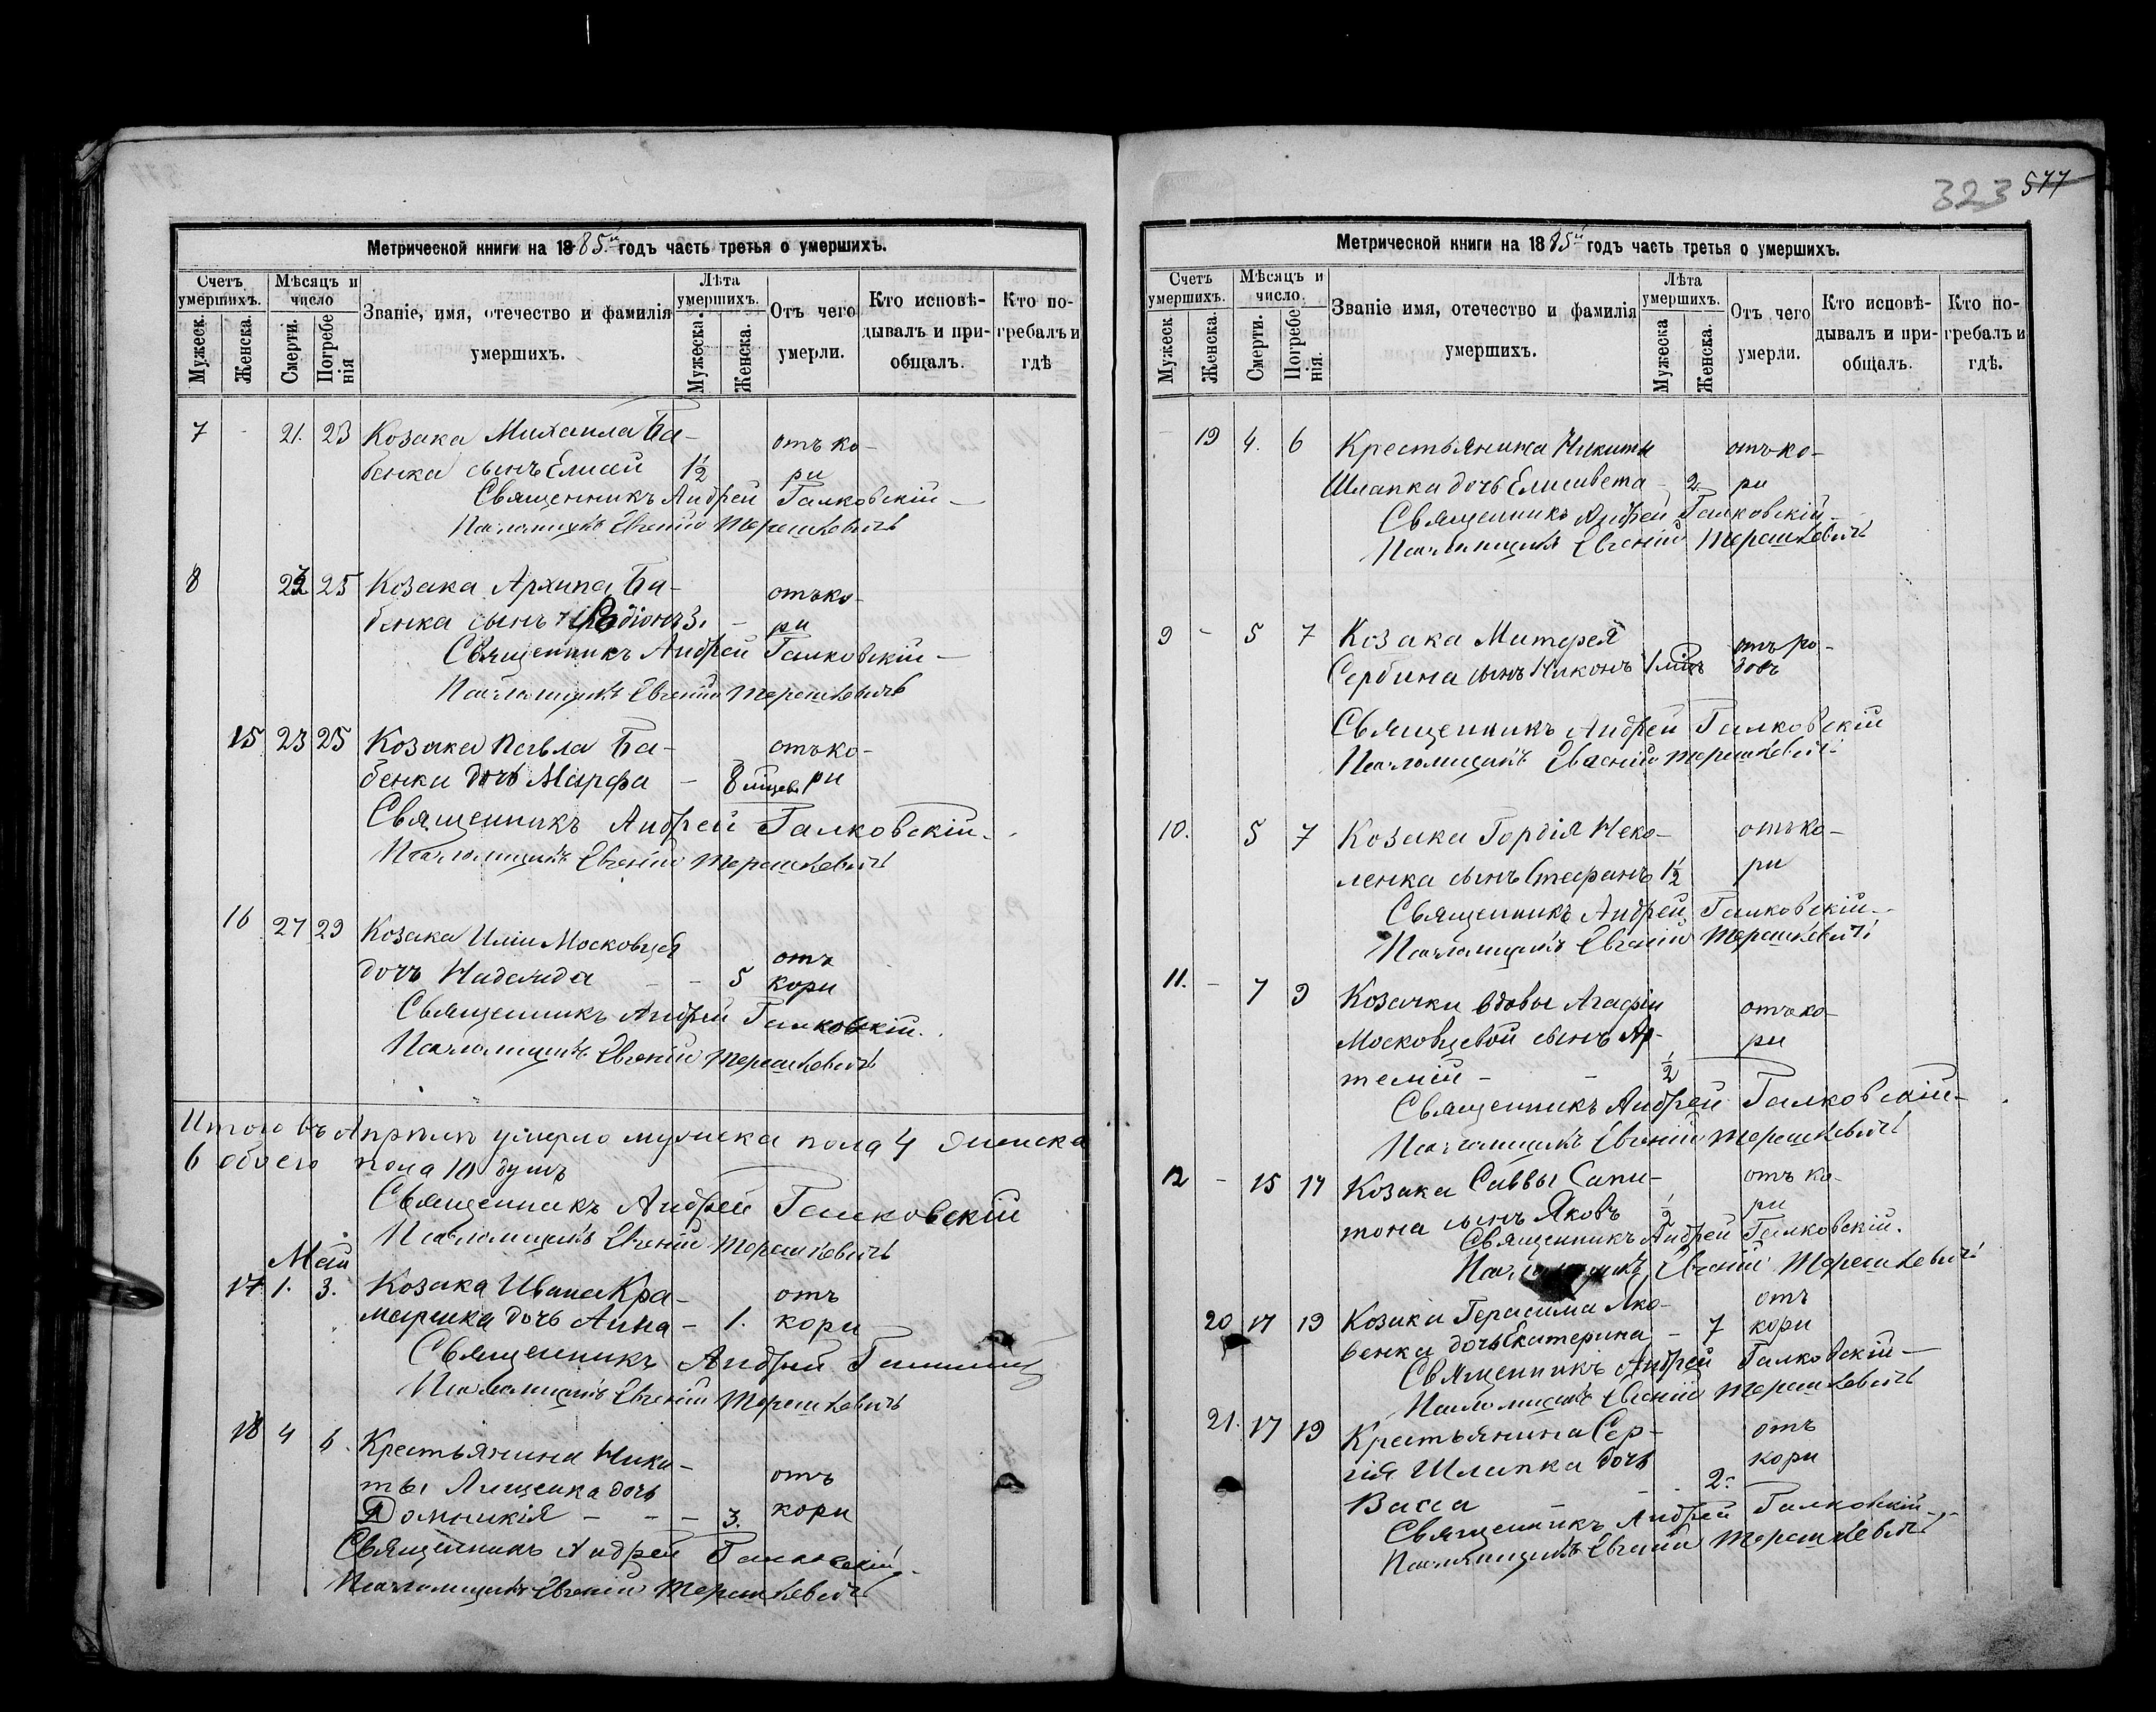 Метрической книги на 1885й годъ часть третья о умершихъ.
Счетъ умершихъ. Мѣсяцъ и число Званіе, имя, отечество и фамилія умершихъ. Лѣта умершихъ. Отъ чего умерли. Кто исповѣдывалъ и пріобщалъ. Кто погребалъ и гдѣ
Мужеск. Женска. Смерти. Погребенія Мужеска. Женска.
7 - 21. 23 Козака Михаила Ба- отъ ко-
бенка сынъ Елисей 1½ ри
Священникъ Андрей Галковскій
Псаломщикъ Евгеній Терешкевичъ
8 25 Козака Архипа Ба- отъ ко-
бенка сынъ Родіонъ 3. - ри
Священникъ Андрей Галковскій
Псаломщикъ Евгеній Терешкевичъ
15 23 25 Козака Павла Ба- отъ ко-
бенка дочь Марфа - 8 мѣсец. ри
Священникъ Андрей Галковскій
Псаломщикъ Евгеній Терешкевичъ
16 27 29 Козака Иліи Московцея отъ
дочь Надежда - - 5 кори
Священникъ Андрей Галковскій
Псаломщикъ Евгеній Терешкевичъ
Итого въ Апрѣлѣ умерло мужеска пола 4 женска
6 обоего пола 10 душъ
Священникъ Андрей Галковскій
Псаломщикъ Евгеній Терешкевичъ
Май
17 1. 3. Козака Ивана Кра- отъ
маренка дочь Анна - 1. кори
Священникъ Андрей
Псаломщикъ Евгеній Терешкевичъ
18 4 6. Крестьянина Ники-
ты Лищенка дочь отъ
Домникія - - - 3. кори
Священникъ Андрей Галковскій
Псаломщикъ Евгеній Терешкевичъ
323 577
Метрической книги на 1885й годъ часть третья о умершихъ.
Счетъ умершихъ. Мѣсяцъ и число. Званіе имя, отечество и фамилія умершихъ. Лѣта умершихъ. Отъ чего умерли. Кто исповѣдывалъ и пріобщалъ. Кто погребалъ и гдѣ.
Мужеск. Женска. Смерти. Погребенія. Мужеска Женска.
- 19 4. 6 Крестьянина Никиты отъ ко-
Шлапка дочь Елисавета - 2. ри
Священникъ Андрей Галковскій
Псаломщикъ Евгеній Терешкевичъ
9 - 5 7 Козака Митрея отъ ро-
Сербина сынъ Никонъ 1 довъ
Священникъ Андрей Галковскій
Псаломщикъ Евгеній Терешкевичъ
10. 5 7 Козака Гордія Неко- отъ ко-
ленка сынъ Стефанъ 1½ ри
Священникъ Андрей Галковскій
Псаломщикъ Евгеній Терешкевичъ
11. - 7 9 Козачки вдовы Агафіи отъ ко-
Московцевой сынъ Ар- ри
темій - - ½
Священникъ Андрей Галковскій
Псаломщикъ Евгеній Терешкевичъ
12 - 15 17 Козака Саввы Сапи- отъ ко-
тона сынъ Яковъ ½ ри
Священникъ Андрей Галковскій.
Псаломщикъ Евгеній Терешкевичъ
20 17 19 Козака Герасима Яко- отъ
венка дочь Екатерина - 7 кори
Священникъ Андрей Галковскій
Псаломщикъ Евгеній Терешкевичъ
21. 17 19 Крестьянина Сер- отъ
гія Шлапка дочь кори
Васса - - - 2.
Священникъ Андрей Галковскій
Псаломщикъ Евгеній Терешкевичъ